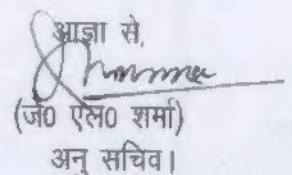 आज्ञा से,
(जे0 एल0 शर्मा)
अनु सचिव।